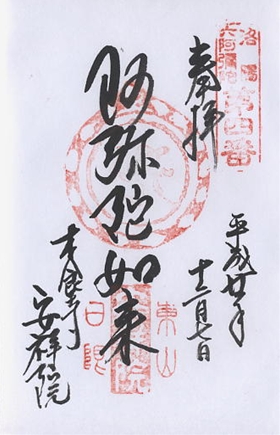 洛陽
六阿彌陀
第四番
奉拝
阿弥陀如来
平成廿年
十二月七日
東山
日限
木食寺
安祥院